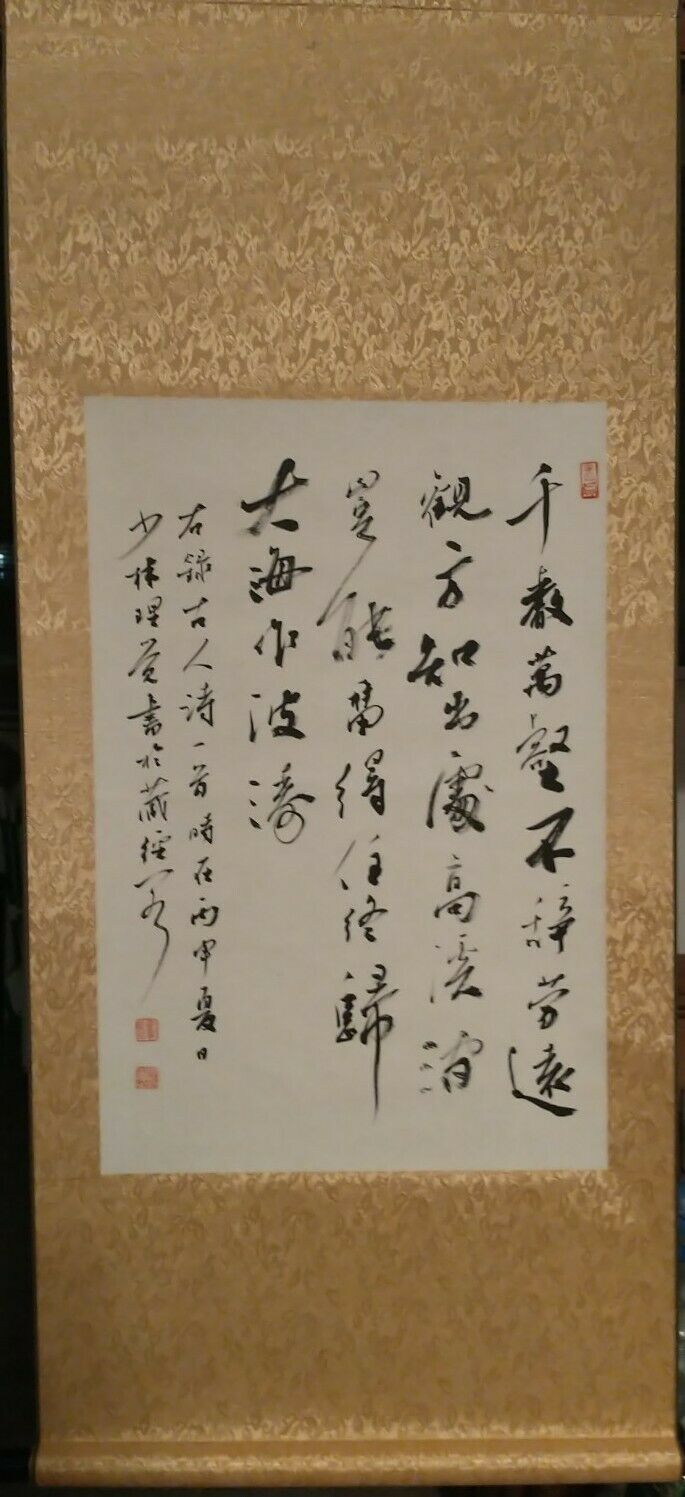 千巖萬壑不辭勞遠
觀方知出處高溪澗
豈能留得住終歸
大海作波濤
右錄古人詩一首時在丙申夏日
少林理書於藏經閣